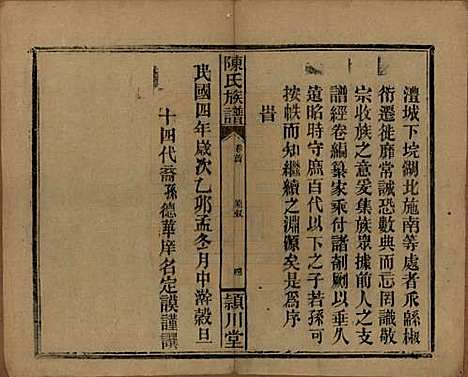 澧城下垸湖北施南等處者瓜緜椒
衍遷徙靡常誠恐數典而忘罔識敬
宗收族之意爰集族眾據前人之支
譜經卷編纂家乘付諸剞劂以垂久
遠昭時守庶百代以下之子若孫可
按帙而知繼續之淵源矣是為序
旹
陳氏族譜
卷首
穎川堂
民國四年歲次乙卯孟冬月中澣穀旦
十四代裔孫德華庠名定謨謹譔